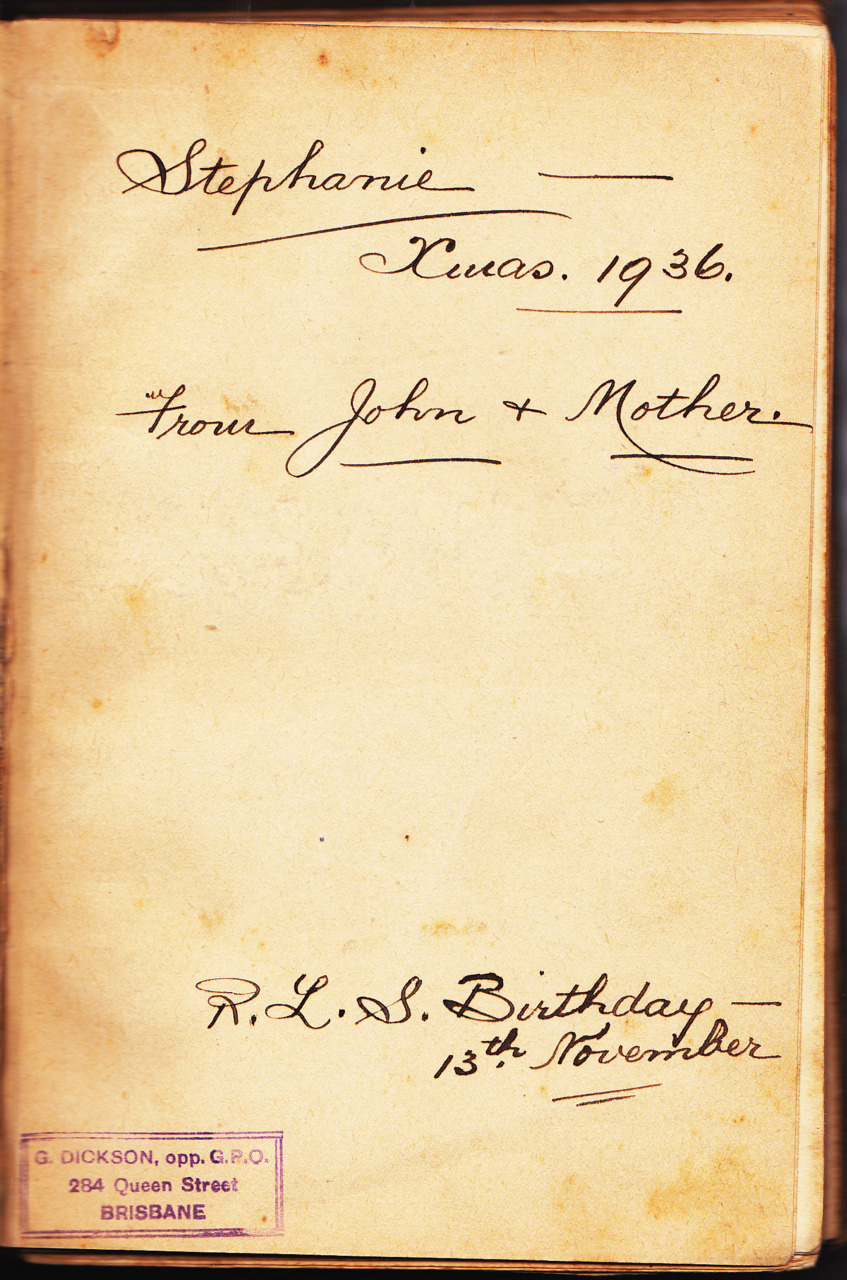 Stephanie —
Xmas. 1936.
From John + Mother.
R. L. S. Birthday —
13th November
G. DICKSON, opp. G.P.O.
284 Queen Street
BRISBANE